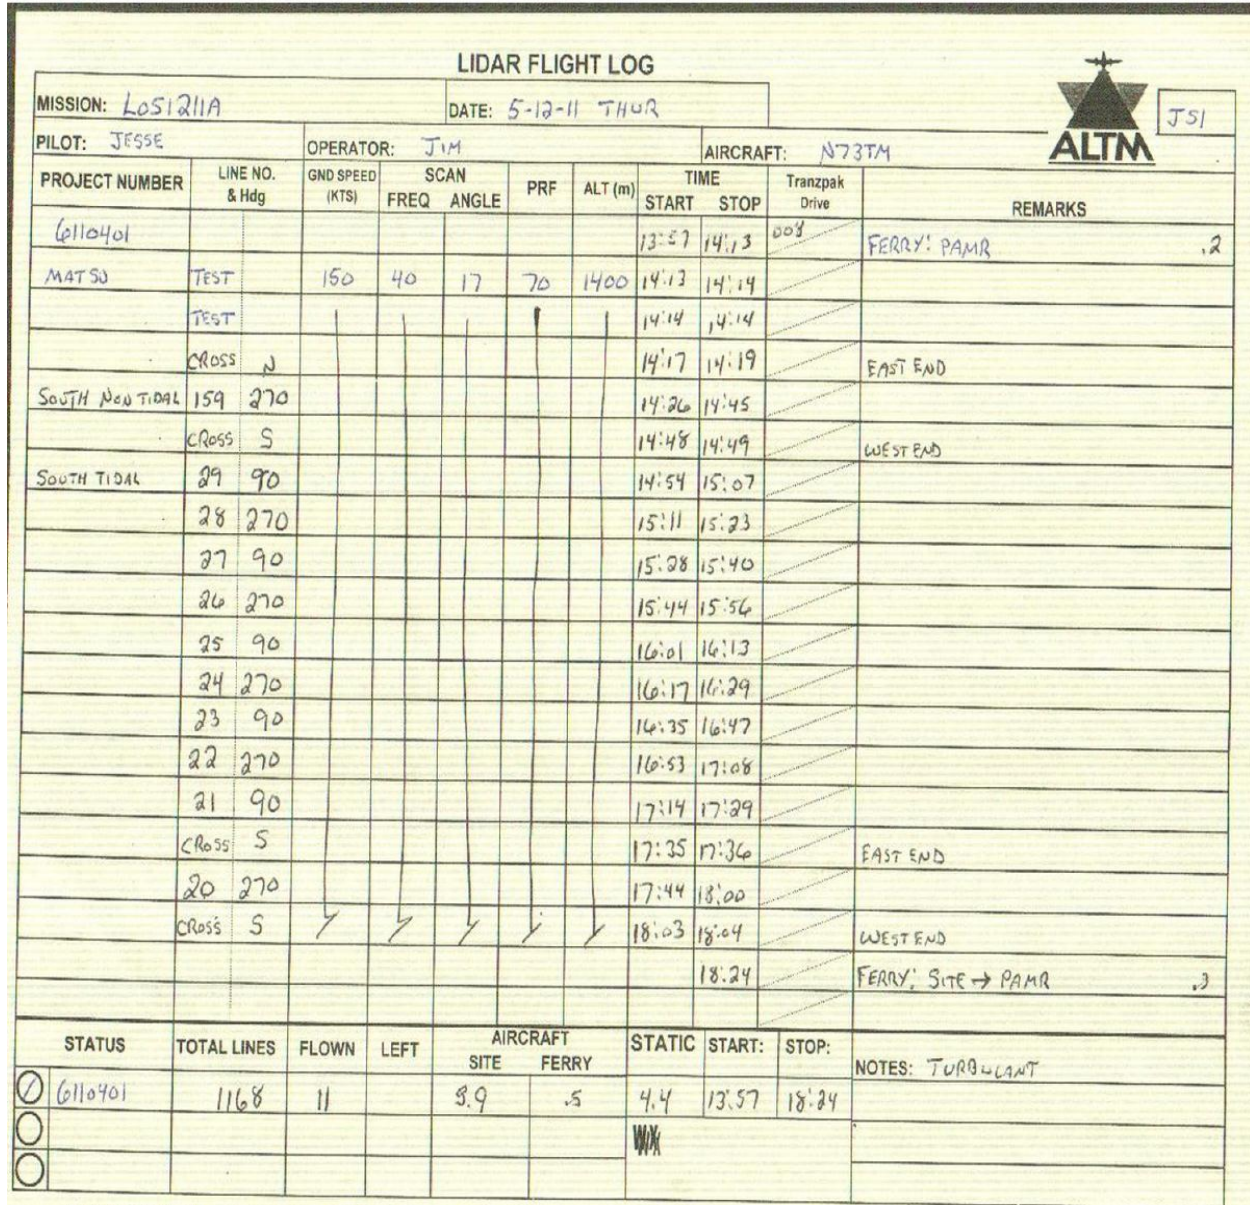 LIDAR FLIGHT LOG
MISSION: L051211A DATE: 5-12-11 THUR
ALTM
J51
PILOT: JESSE OPERATOR: JIM AIRCRAFT: N73TM
PROJECT NUMBER LINE NO. & Hdg GND SPEED (KTS) SCAN FREQ ANGLE PRF ALT (m) TIME START STOP Tranzpak Drive REMARKS
6110401 13:57 14:13 008 FERRY: PAMR .2
MATSU TEST 150 40 17 70 1400 14:13 14:14
TEST 14:14 14:14
CROSS N 14:17 14:19 EAST END
SOUTH NON TIDAL 159 270 14:26 14:45
CROSS S 14:48 14:49 WEST END
SOUTH TIDAL 29 90 14:54 15:07
28 270 15:11 15:23
27 90 15:28 15:40
26 270 15:44 15:56
25 90 16:01 16:13
24 270 16:17 16:29
23 90 16:35 16:47
22 270 16:53 17:08
21 90 17:14 17:29
CROSS S 17:35 17:36 EAST END
20 270 17:44 18:00
CROSS S 18:03 18:04 WEST END
18:24 FERRY: SITE → PAMR .3
STATUS TOTAL LINES FLOWN LEFT AIRCRAFT SITE FERRY STATIC START: STOP: NOTES: TURBULANT
6110401 1168 11 3.9 .5 4.4 13:57 18:24